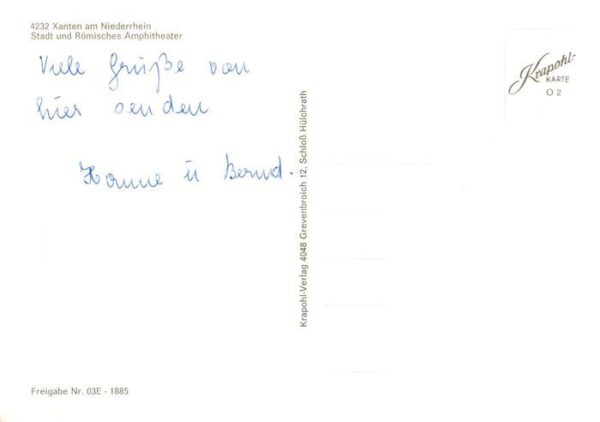 4232 Xanten am Niederrhein
Stadt und Römisches Amphitheater
Viele Grüße von
hier senden
Hanne u Bernd.
Krapohl-Verlag 4048 Grevenbroich 12, Schloß Hülchrath
Krapohl-
KARTE
O 2
Freigabe Nr. 03E - 1885